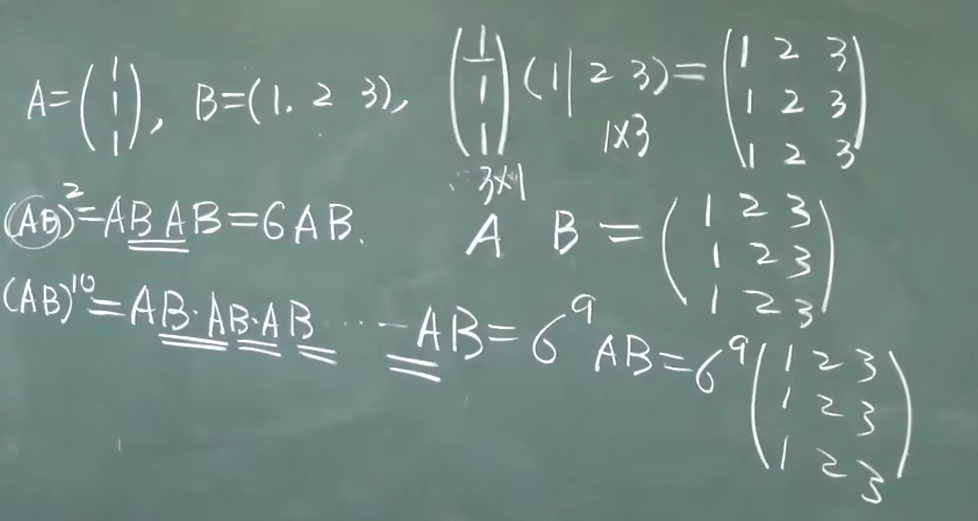 A=(1 1 1), B=(1. 2 3), (1 1 1)(1 2 3)=(1 2 3
1 2 3
1 2 3)
3×1 1×3
(AB)²=ABAB=6AB.
A B=(1 2 3
1 2 3
1 2 3)
(AB)¹⁰=AB·AB·AB ··· AB=6⁹AB=6⁹(1 2 3
1 2 3
1 2 3)